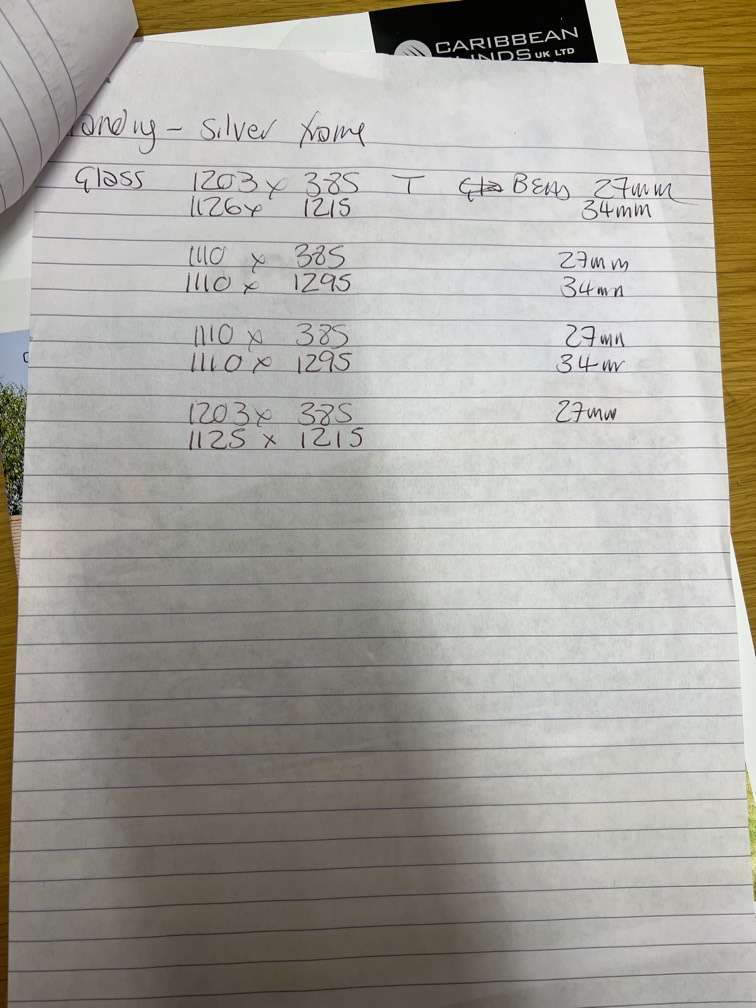 CARIBBEAN
BLINDS UK LTD
Landing - Silver frame
Glass 1203 x 385 T BEAD 27mm
1126 x 1215 34mm
1110 x 385 27mm
1110 x 1295 34mm
1110 x 385 27mm
1110 x 1295 34mm
1203 x 385 27mm
1125 x 1215